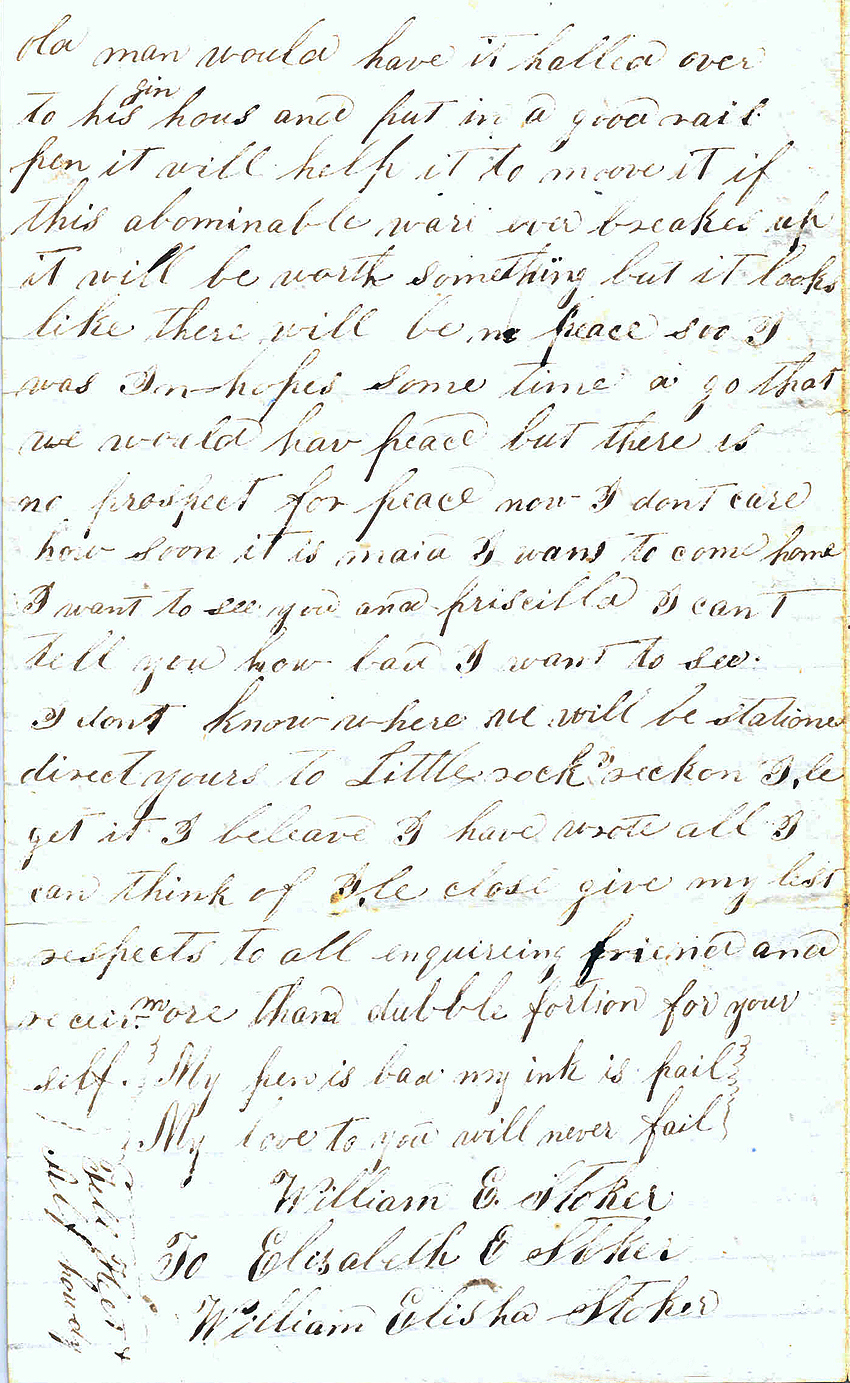 old man would have it halled over
to his gin hous and put in a good rail
pen it will help it to moove it if
this abominable ware ever breakes up
it will be worth something but it looks
like there will be no peace soo I
was In hopes some time a go that
we would hav peace but there is
no prospect for peace now I dont care
how soon it is maid I want to come home
I want to see you and priscilla I cant
tell you how bad I want to see.
I dont know where we will be statione
direct yours to Little rock I reckon I,le
get it I beleave I have wrote all I
can think of I,le close give my best
respects to all enquireing friend and
receive more than dubble fortion for your
self. My pen is bad my ink is pail
My love to you will never fail
William E. Stoker
To Elisabeth E Stoker
William Elisha Stoker
self howdy